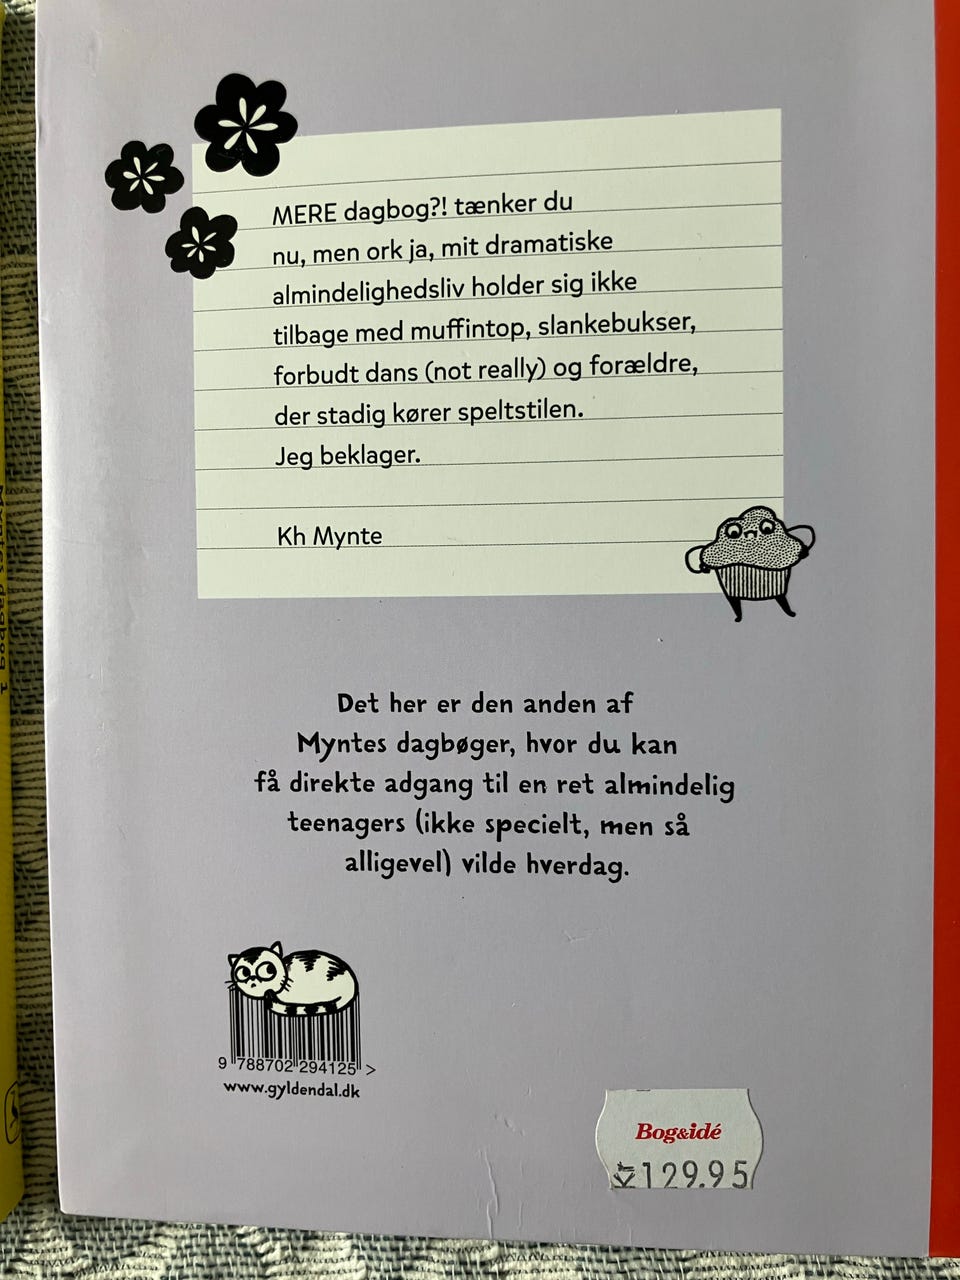 MERE dagbog?! tænker du
nu, men ork ja, mit dramatiske
almindelighedsliv holder sig ikke
tilbage med muffintop, slankebukser,
forbudt dans (not really) og forældre,
der stadig kører speltstilen.
Jeg beklager.
Kh Mynte
Det her er den anden af
Myntes dagbøger, hvor du kan
få direkte adgang til en ret almindelig
teenagers (ikke specielt, men så
alligevel) vilde hverdag.
9 788702 294125 >
www.gyldendal.dk
Bog&idé
Kr 129.95
Myntes dagbog 1